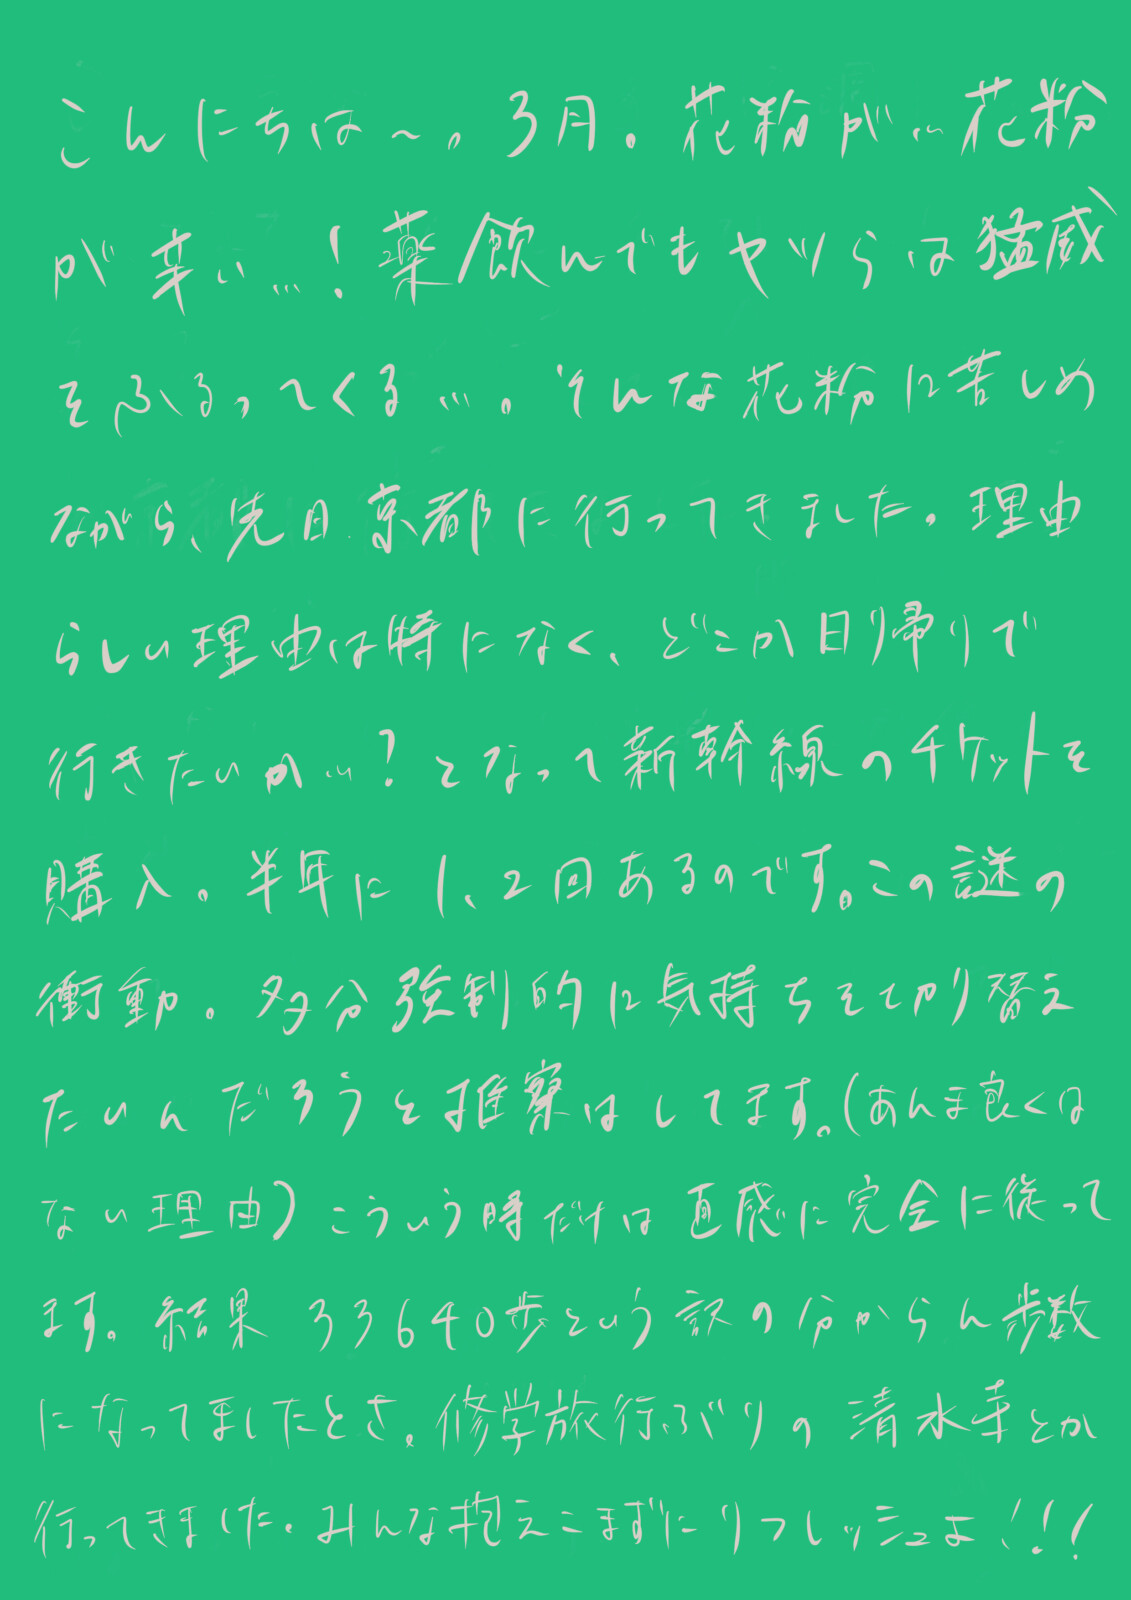 こんにちは〜。3月。花粉が…花粉
が辛い…！薬飲んでもヤツらは猛威
をふるってくる…。そんな花粉に苦しめ
ながら、先日京都に行ってきました。理由
らしい理由は特になく、どこか日帰りで
行きたいか…？となって新幹線のチケットを
購入。半年に1、2回あるのです。この謎の
衝動。多分強制的に気持ちを切り替え
たいんだろうと推察はしてます。(あんま良くは
ない理由)こういう時だけは直感に完全に従って
ます。結果33640歩という訳の分からん歩数
になってましたとさ。修学旅行ぶりの清水寺とか
行ってきました。みんな抱えこまずにリフレッシュよ！！！